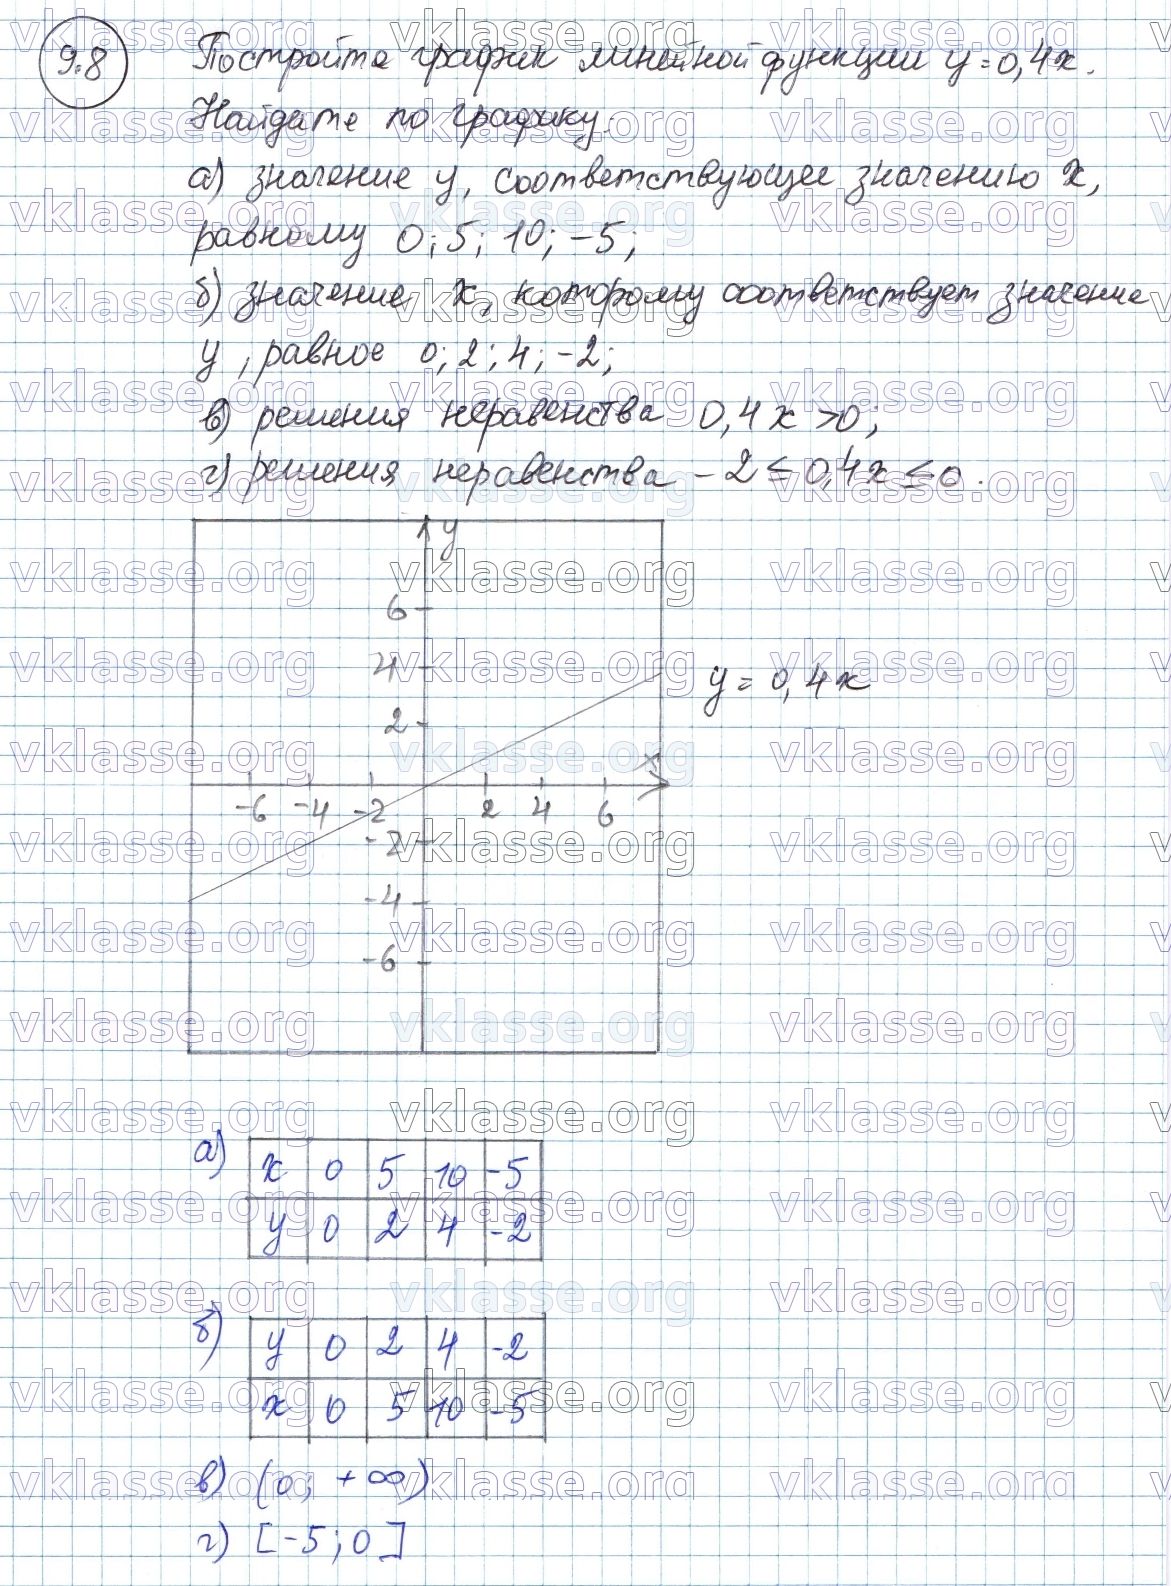 9.8
Постройте график линейной функции y = 0,4x.
Найдите по графику:
а) значение y, соответствующее значению x,
равному 0; 5; 10; -5;
б) значение x, которому соответствует значение
y, равное 0; 2; 4; -2;
в) решения неравенства 0,4x >0;
г) решения неравенства -2 ≤ 0,4x ≤ 0.
y
6
4
y = 0,4x
2
x
-6 -4 -2 2 4 6
-2
-4
-6
а) x 0 5 10 -5
y 0 2 4 -2
б) y 0 2 4 -2
x 0 5 10 -5
в) (0; +∞)
г) [-5; 0]
vklasse.org